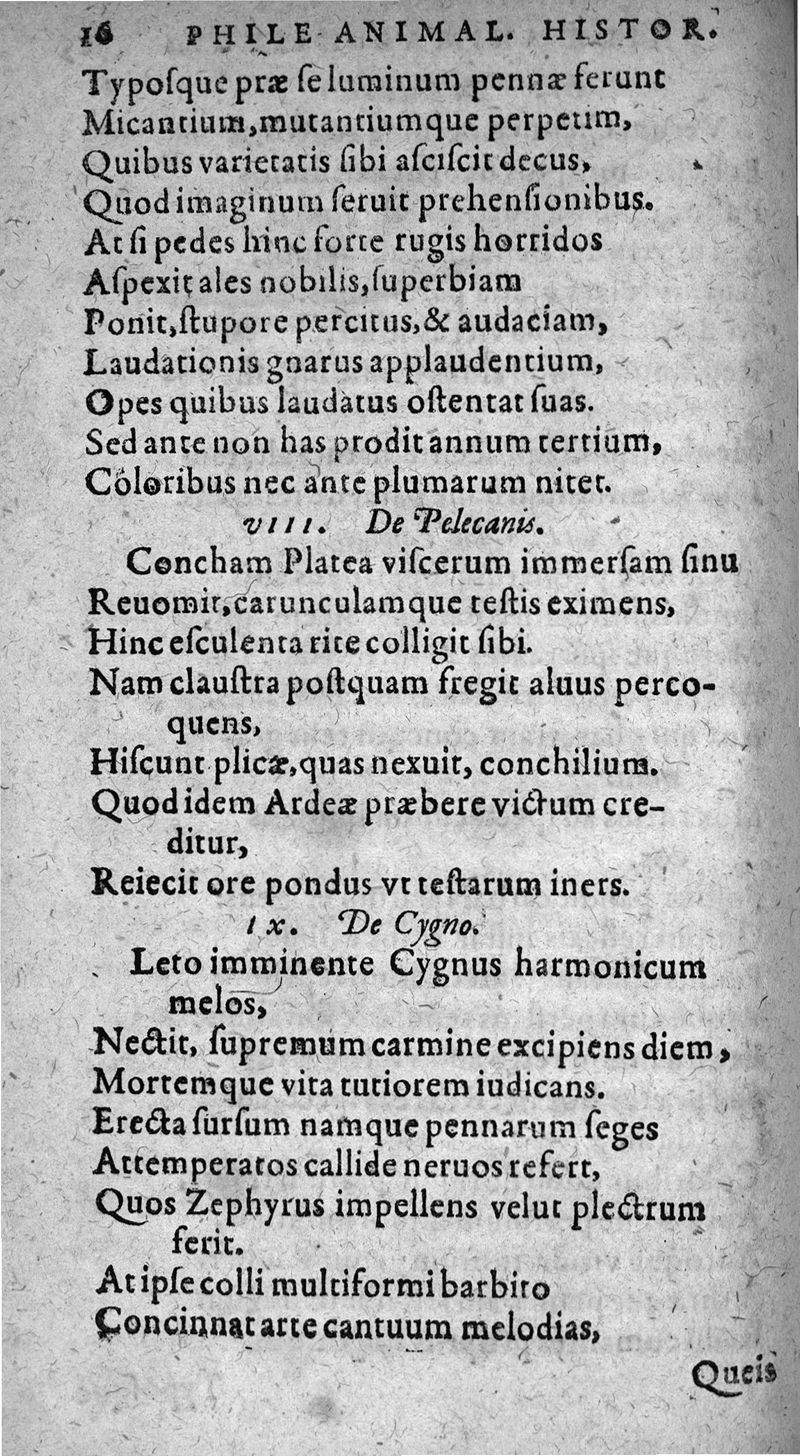 16 PHILE ANIMAL. HISTOR.
Typoſque præ ſe luminum pennæ ferunt
Micantium, mutantiumque perpetim,
Quibus varietatis ſibi aſciſcit decus,
Quod imaginum ſeruit prehenſionibus.
At ſi pedes hinc forte rugis horridos
Aſpexit ales nobilis, ſuperbiam
Ponit, ſtupore percitus, & audaciam,
Laudationis gnarus applaudentium,
Opes quibus laudatus oſtentat ſuas.
Sed ante non has prodit annum tertium,
Coloribus nec ante plumarum nitet.
VIII. De Pelecanis.
Concham Platea viſcerum immerſam ſinu
Reuomit, carunculamque teſtis eximens,
Hinc eſculenta rite colligit ſibi.
Nam clauſtra poſtquam fregit aluus perco-
quens,
Hiſcunt plicæ, quas nexuit, conchilium.
Quod idem Ardeæ præbere victum cre-
ditur,
Reiecit ore pondus vt teſtarum iners.
IX. De Cygno.
Leto imminente Cygnus harmonicum
melos,
Nectit, ſupremum carmine excipiens diem,
Mortemque vita tutiorem iudicans.
Erecta ſurſum namque pennarum ſeges
Attemperatos callide neruos refert,
Quos Zephyrus impellens velut plectrum
ferit.
At ipſe colli multiformi barbito
Concinnat arte cantuum melodias,
Queis